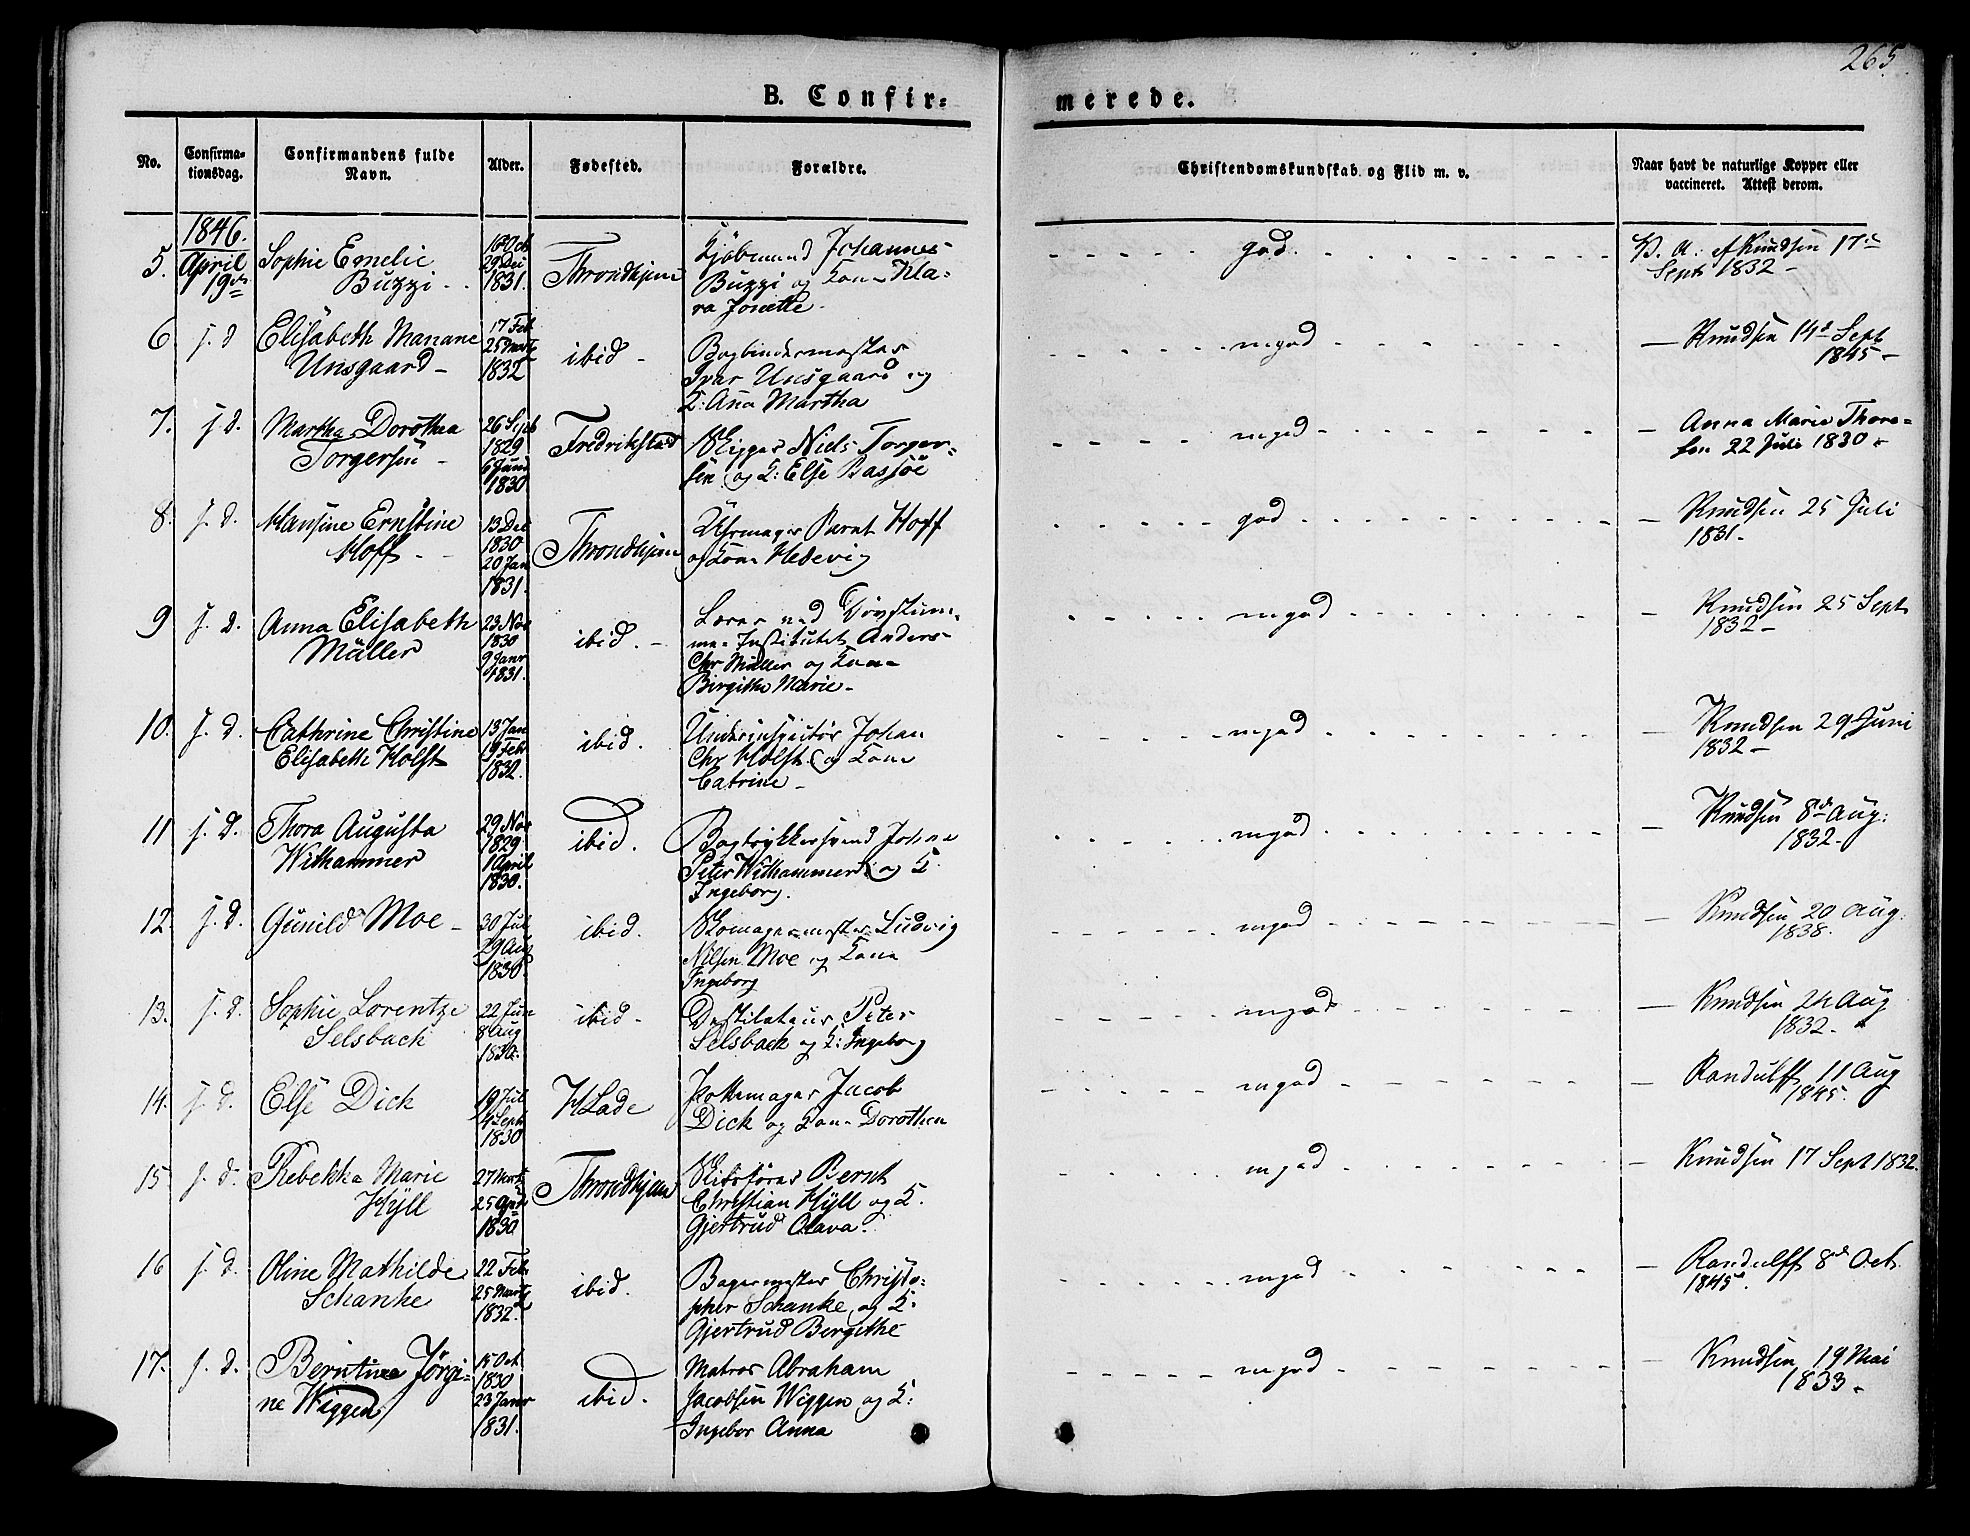 265.
B. Confir=
merede.
No.
Confirma-
tionsdag.
Confirmandens fulde
Navn.
Alder.
Fødested.
Forældre.
Christendomskundskab og Flid m. v.
Naar havt de naturlige Kopper eller
vaccineret. Attest derom.
1846.
5. April 19de Sophie Emelie
Buzzi
16 Oct
29 Dei
1831.
Throndhjem
Kjøbmand Johannes
Buzzi og Kone Kla-
ra Jonette
god
V. A. af Knudsen 17de
Sept 1832
6 s. d Elisabeth Mariane
Unsgaard
17 Feb
25 Marts
1832
ibid
Bogbindermester
Ivar Unsgaard og
K: Ana Martha
mgod
Knudsen 14de Sept
1845
7. s. d. Martha Dorothea
Torgersen
26 Sept
1829
6 Juni
1830
Fredrikstad
Skipper Niels Torger-
sen og K: Else Bassøe
mgod
Anna Marie Thore-
sen 22 Juli 1830
8. s. d. Hansine Ernstine
Hoff
13 Dec
1830
20 Jan
1831.
Throndhjem
Uhrmager Barnt Hoff
og Kone Hedevig
god
Knudsen 25 Juli
1831
9 s. d. Anna Elisabeth
Müller
23 Nov
1830
9 Janr
1831.
ibid.
Lærer ved Døvstum-
me-Institutet Anders
Chr Müller og Kone
Birgithe Marie
mgod
Knudsen 25 Sept
1832
10. s. d. Cathrine Christine
Elisabeth Holst
13 Jan
19 Febr
1832.
ibid.
Underinspecteur Johan
Chr Holst og Kone
Catrine
mgod
Knudsen 29 Juni
1832
11 s. d. Thora Augusta
Withammer
29 Nov
1829
1 April
1830.
ibid.
Bogtrykkersvend Johan
Peter Withammer og K
Ingeborg.
mgod
Knudsen 8de Aug:
1832.
12. s. d. Gunild Moe
30 Jul
29 Aug
1830
ibid.
Skomagermester Ludvig
Nilsen Moe og Kone
Ingeborg
mgod
Knudsen 20 Aug:
1838.
13. s. d. Sophie Lorentze
Selsbach
22 Jun
8 Aug
1830.
ibid.
Destilateur Peter
Selsback og K: Ingeborg
mgod
Knudsen 24 Aug
1832.
14. s. d. Else Dick
19 Jul
4 Sept
1830
Hlade
Pottemager Jacob
Dick og Kone Dorothea
mgod
Randulff 11 Aug
1845.
15 s. d. Rebekka Marie
Hÿll
27 Marts
25 April
1830
Throndhjem
Christian Hÿll og K.
Gjertrud Olava.
mgod
Knudsen 17 Sept 1832.
16 s. d. Oline Mathilde
Schanke
22 Feb
25 Marts
1832
ibid.
Bagermester Christo-
pher Schanke og K:
Gjertrud Bergithe
mgod
Randulff 8de Oct.
1845.
17. s. d. Berntine Jørgi-
ne Wiggen
15 Oct
1830
23 Janr
1831.
ibid.
Matros Abraham
Jacobsen Wiggen og K:
Ingebor Anna
mgod
Knudsen 19 Mai
1833